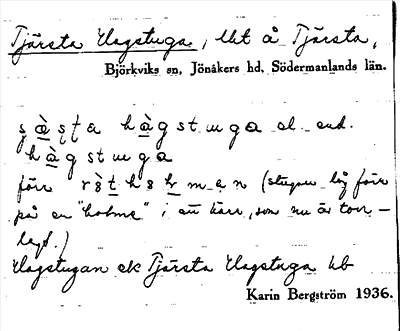 Tjärsta Hagstuga, lht å Tjärsta,
Björkviks sn, Jönåkers hd, Södermanlands län.
hàgstuga el. end.
hàgstuga
förr (stugan låg förr
på en "holme" i ett kärr, som nu är torr-
lagt.)
Hagstugan ek Tjärsta Hagstuga kb
Karin Bergström 1936.